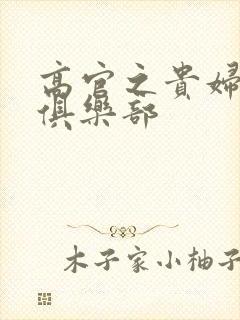 高官之貴婦
俱樂部
木子家小柚子